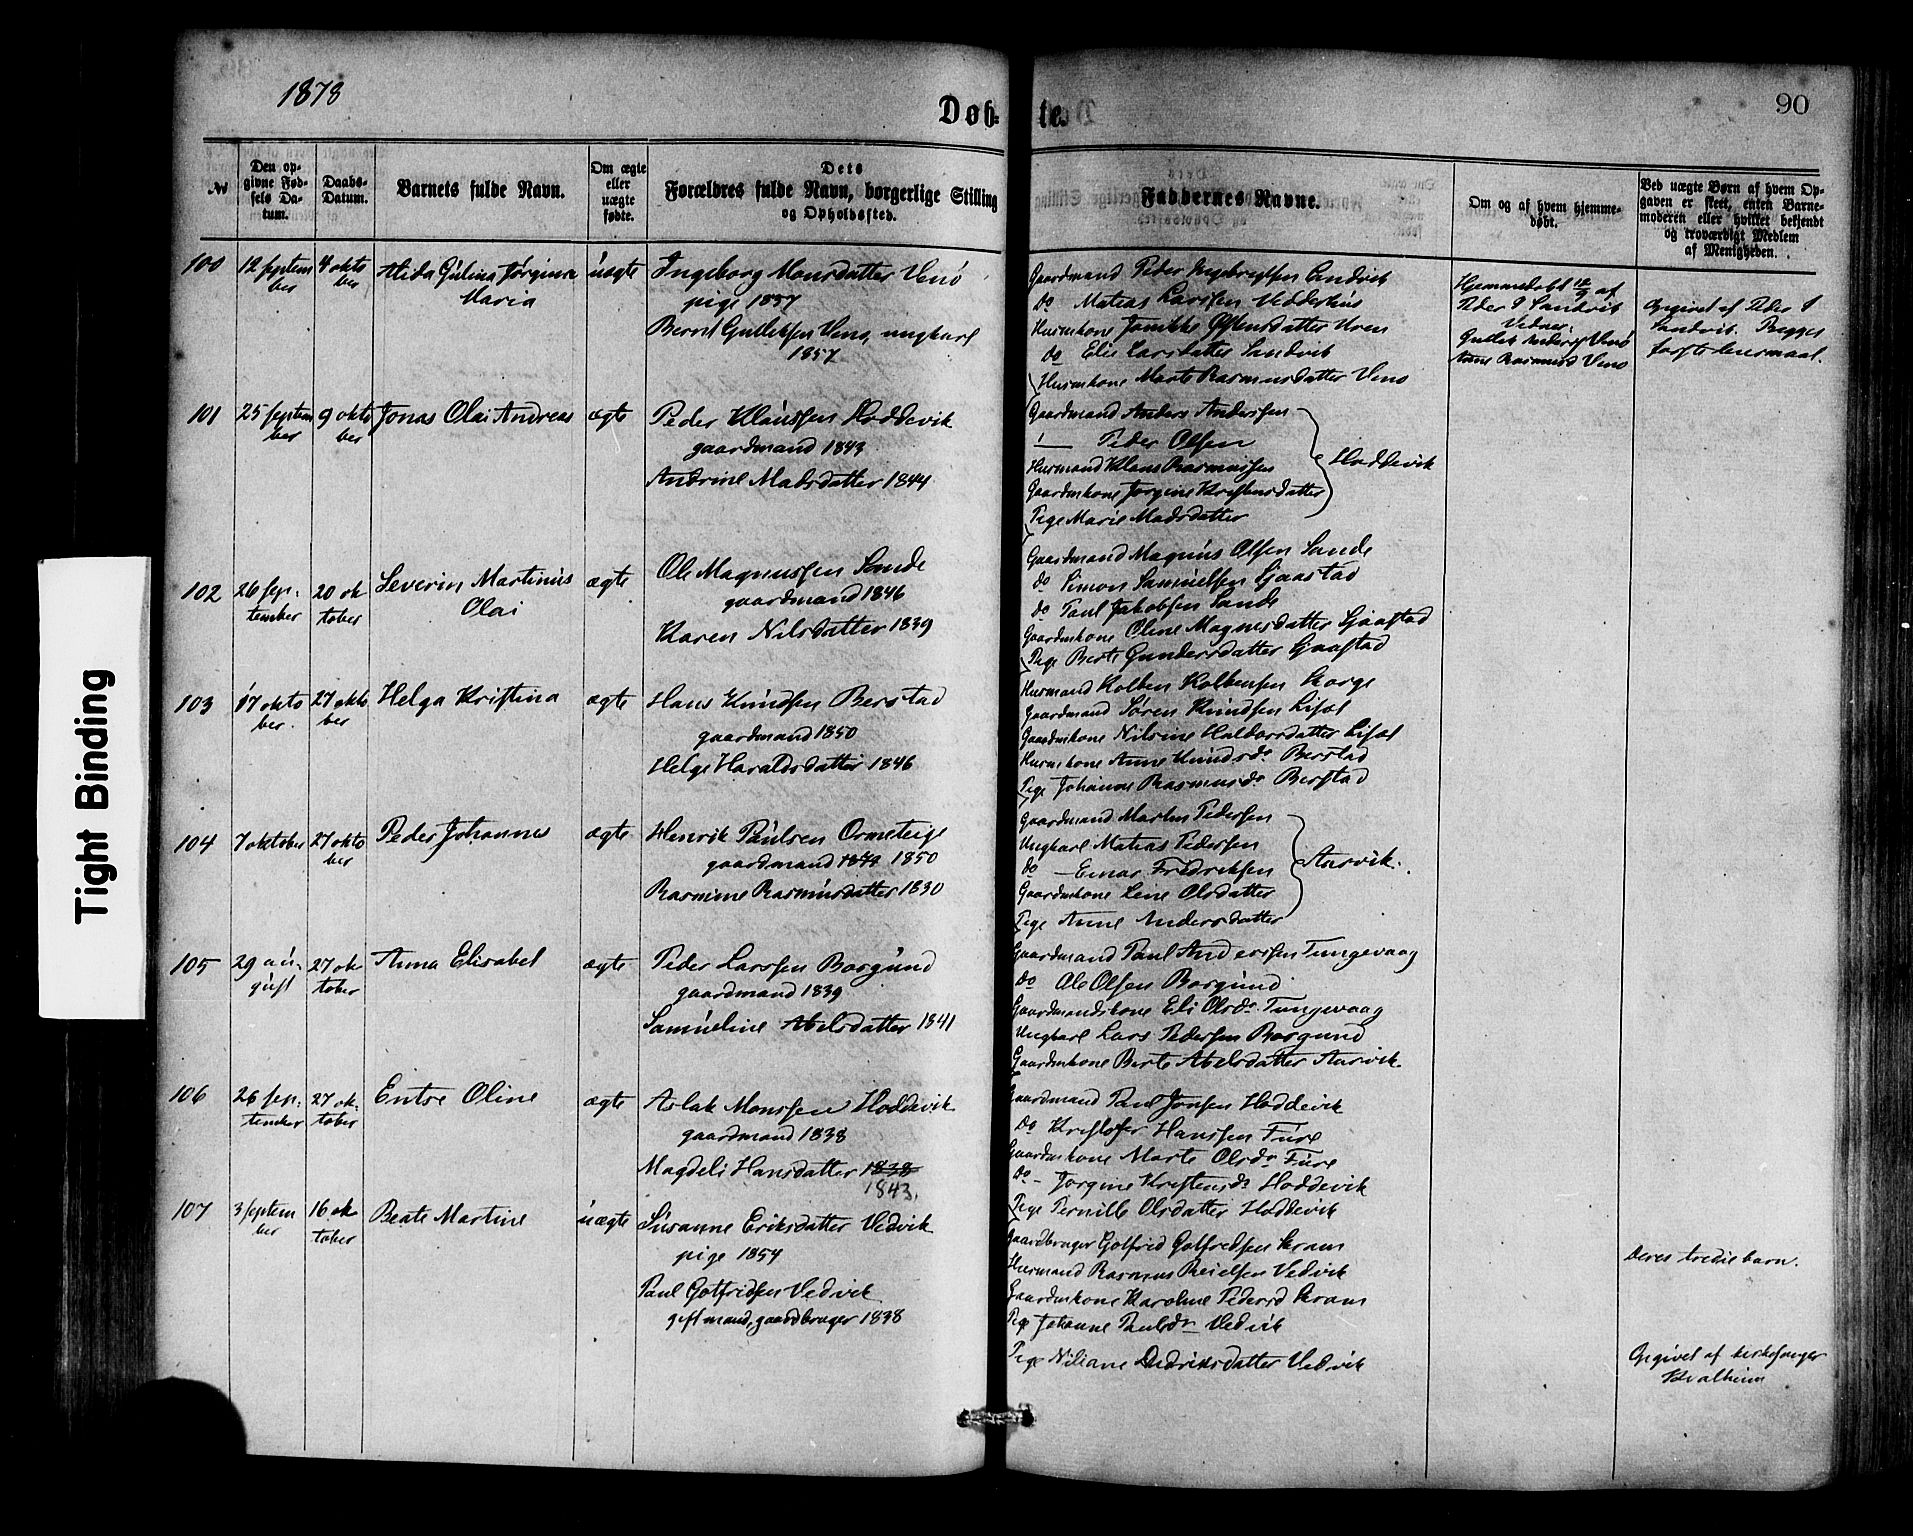 1878
Døb-
te.
90
№
Den op-
givne Fød-
sels Da-
tum.
Daabs-
Datum.
Barnets fulde Navn.
Om ægte
eller
uægte
fødte.
Dets
Forældres fulde Navn, borgerlige Stilling
og Opholdssted.
Faddernes Navne.
Om og af hvem hjemme-
døbt.
Ved uægte Børn af hvem Op-
gaven er skeet, enten Barne-
moderen eller hvilket bekjendt
og troværdigt Medlem
af Menigheden.
100
12 septem
ber
4 okto
ber
Alida Gúlina Jørgina
Maria
úægte
Ingeborg Monsdatter Venø
pige 1857
Bernt Gulleksen Venø, ungkarl
1857
Gaardmand Peder Ingebregtsen Sandvik
do Matias Larssen Vedderhús
Húsmkone Jonikke Østensdatter Uren
do Elie Larsdatter Sandvik
Húsmkone Marte Rasmusdatter Venø
Hjemmedøbt 12/9 af
Peder I Sandvik
Vidner:
Gullek Anders Venø
Anne Rasmusd Venø
Opgivet af Peder I
Sandvik. Begges
første leiermaal.
101
25 septem
ber
9 okto
ber
Jonas Olai Andreas
ægte
Peder Klaússen Hoddevik
gaardmand 1843
Andrine Madsdatter 1844
Gaardmand Anders Anderssen
Peder Olsen
Húsmand Klaus Rasmussen
Gaardmkone Jorgine Kristensdatter
Pige Marie Madsdatter
Hoddevik
102
26 sep-
tember
20 ok
tober
Severin Martinús
Olai
ægte
Ole Magnussen Sande
gaardmand 1846
Karen Nilsdatter 1839
Gaardmand Magnús Olsen Sande
do Simon Samúelsen Sjaastad
do Paul Jakobsen Sande
Gaardmkone Oline Magnesdatter Sjaastad
Pige Berte Gundersdatter Sjaastad
103
17 okto
ber.
27 okto
ber
Helga Kristina
ægte
Hans Knúdsen Berstad
gaardmand 1850
Helge Haraldsdatter 1846
Húsmand Kolben Kolbensen Korge
Gaardmand Søren Knúdsen Lisæt
Gaardmkone Nilsine Haldorsdatter Lisæt
Húsmkone Anne Knúdsdr Berstad
Pige Johanne Rasmusdr Berstad
104
7 oktober
27 okto
ber
Peder Johannes
ægte
Henrik Paúlsen Ormeteige
gaardmand 1849 1850
Rasmine Rasmúsdatter 1830
Gaardmand Martin Pedersen
Ungkarl Matias Pedersen
do - Einar Fredriksen
Gaardmkone Leine Olsdatter
Pige Anne Andersdatter
Aarvik.
105
29 aú-
gúst
27 ok
tober
Anna Elisabet
ægte
Peder Larssen Borgúnd
gaardmand 1839
Samúeline Abelsdatter 1841
Gaardmand Paul Anderssen Tungevaag
do Ole Olsen Borgúnd
Gaardmandskone Eli Olsdr Tungevaag
Ungkarl Lars Pedersen Borgund
Gaardmkone Berte Abelsdatter Aarvik
106
26 sep-
tember
27 ok-
tober
Entse Oline
ægte
Aslak Monssen Hoddevik
gaardmand 1838
Magdeli Hansdatter 1838
1843.
Gaardmand Paul Jonsen Hoddevik
do Kristofer Hanssen Fure
Gaardmkone Marte Olsdr Fure
Do - Jorgine Kristensdr Hoddevik
Pige Pernille Olsdatter Hoddevik
107
3 septem
ber
16 ok
tober
Beate Martine
úægte
Súsanne Eriksdatter Vedvik
pige 1854
Paul Gotfridsen Vedvik
gift mand, gaardbruger 1838
Gaardbruger Gotfred Gotfredsen Kram
Húsmand Rasmus Reielsen Vedvik
Gaardmkone Karoline Pedersd Kram
Pige Johanne Paulsdr Vedvik
Pige Niliane Didriksdatter Vedvik
Deres tredie barn.
Opgivet af kirkesanger
Kvalheim
Tight Binding